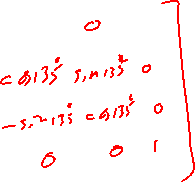 0
cos135° sin135° 0
-sin135° cos135° 0
0 0 1